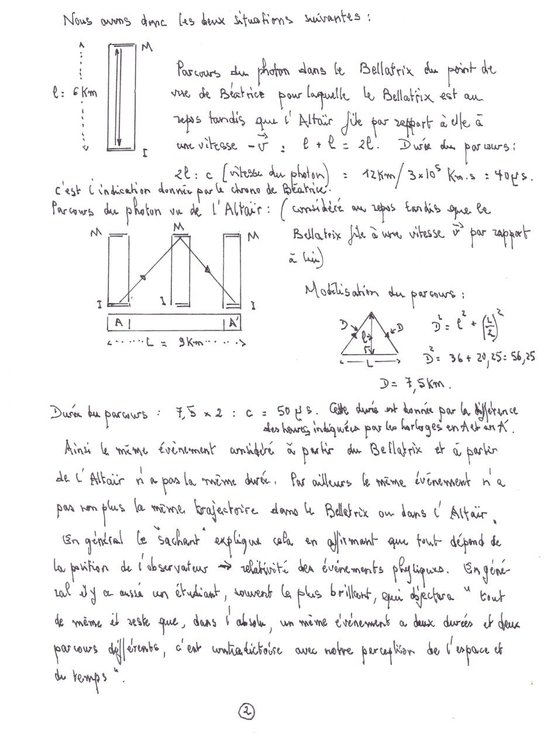 Nous avons donc les deux situations suivantes :
M
l : 6 Km
I
Parcours du photon dans le Bellatrix du point de
vue de Béatrice pour laquelle le Bellatrix est au
repos tandis que l'Altaïr file par rapport à elle à
une vitesse -v : l + l = 2l. Durée du parcours :
2l : c (vitesse du photon) = 12Km / 3×10⁵ Km.s = 40µs.
c'est l'indication donnée par le chrono de Béatrice.
Parcours du photon vu de l'Altaïr : (considéré au repos tandis que le
Bellatrix file à une vitesse v par rapport
à lui)
M M M
I I I
A A'
L = 9Km
Modélisation du parcours :
D l D
L
D² = l² + (L/2)²
D² = 36 + 20,25 = 56,25
D = 7,5 Km.
Durée du parcours : 7,5 × 2 : c = 50µs. Cette durée est donnée par la différence
des heures indiquées par les horloges en A et en A'.
Ainsi le même évènement considéré à partir du Bellatrix et à partir
de l'Altaïr n'a pas la même durée. Par ailleurs le même évènement n'a
pas non plus la même trajectoire dans le Bellatrix ou dans l'Altaïr.
En général le "sachant" explique cela en affirmant que tout dépend de
la position de l'observateur → relativité des évènements physiques. En géné-
ral il y a aussi un étudiant, souvent le plus brillant, qui objectera " tout
de même il reste que, dans l'absolu, un même évènement a deux durées et deux
parcours différents, c'est contradictoire avec notre perception de l'espace et
du temps ".
2